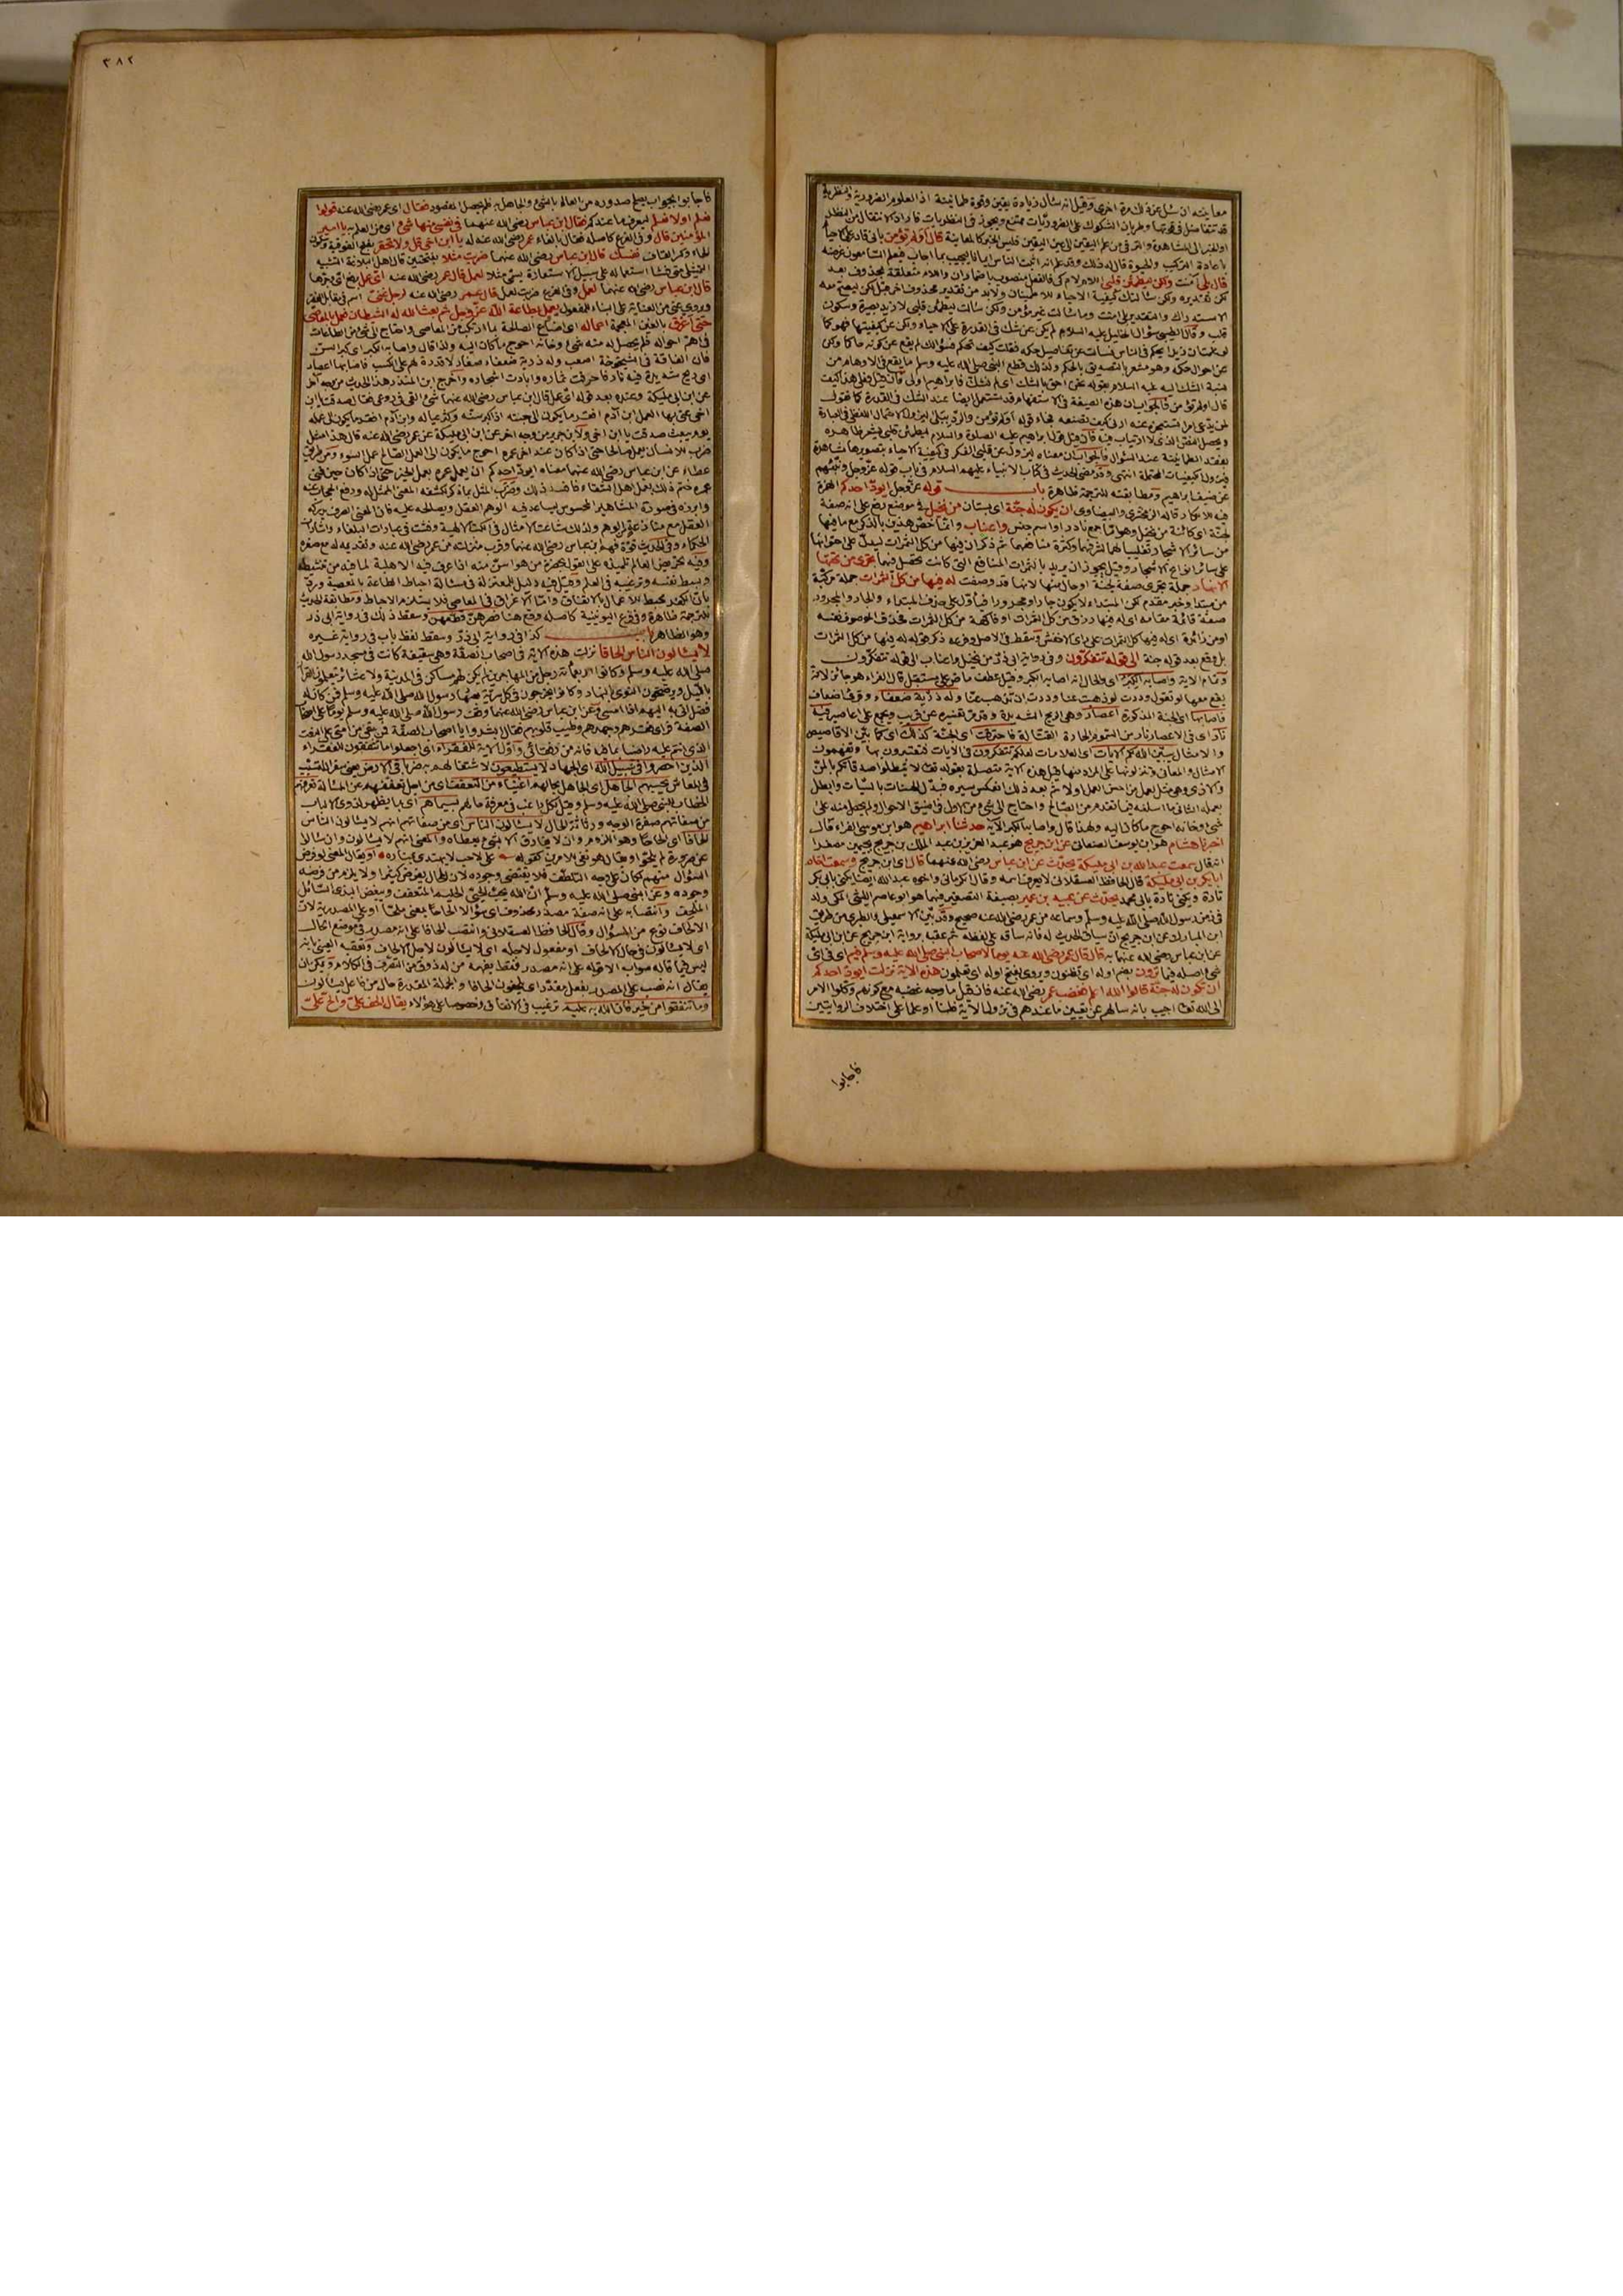 معاينة ان سئل عزة لك مرة اخرى وقيل انه سأل زيادة يقين وقوة طمانينة اذ العلوم الضرورية والنظرية
قد تتفاضل في قوتها وطريان الشكوك على الضروريات ممتنع ويجوز في النظريات فاراد الانتقال من النظر
او الخبر الى المشاهدة والترقي من علم اليقين الى عين اليقين فليس الخبر كالمعاينة قال أولم تؤمن باني قادر على الاحياء
باعادة التركيب والحيوة قال له ذلك وقد علم انه اثبت الناس ايمانا ليجيب بما اجاب فيعلم السامعون غرضه
قال بلى آمنت ولكن ليطمئن قلبي اللام لام كي فالفعل منصوب باضمار ان واللام متعلقة بمحذوف بعد
لكن تقديره ولكن سألتك كيفية الاحياء للاطمينان ولابد من تقدير محذوف اخر قبل لكن ليصح معه
الاستدراك والتقدير بلى امنت وما سألت غير مؤمن ولكن سألت ليطمئن قلبي لازيد بصيرة وسكون
قلب وقال الطيبي سؤال الخليل عليه السلام لم يكن عن شك في القدرة على الاحياء ولكن عن كيفيتها
لو علمت ان زيدا يحكم في الناس فسألت عن تفاصيل حكمه فقلت كيف تحكم فسؤالك لم يقع عن كونه حاكما ولكن
عن احوال حكمه وهو مشعر بالتصديق بالحكم ولذلك قطع النبي صلى الله عليه وسلم ما يقع في الاوهام من
نسبة الشك اليه عليه السلام بقوله نحن احق بالشك اى لم نشك فابراهيم اولى فان قيل فعلى هذا كيف
قال اولم تؤمن فالجواب ان هذه الصيغة في الاستفهام قد تستعمل ايضا عند الشك في القدرة كما تقول
لمن يدعى امرا تستعجزه عنه ارني كيف تصنعه فجاء قوله أولم تؤمن والرد ببلى ليزول الاحتمال اللفظي في العبارة
ويحصل النص الذي لا ارتياب فيه فان قيل قول ابراهيم عليه الصلاة والسلام ليطمئن قلبي يشعر ظاهره
بفقد الطمانينة عند السؤال فالجواب ان معناه ليزول عن قلبي الفكر في كيفية الاحياء بتصويرها مشاهدة
فتزول الكيفيات المحتملة انتهى وقد مضى الحديث في كتاب الانبياء عليهم السلام في باب قوله عز وجل ونبئهم
عن ضيف ابراهيم ومطابقته للترجمة ظاهرة باب قوله عز وجل أيود احدكم الهمزة
فيه للانكار قاله الزمخشري والبيضاوي ان يكون له جنة اى بستان من نخيل في موضع رفع على انه صفة
لجنة اى كائنة من نخيل وهو اما جمع نادر او اسم جنس واعناب وانما خص هذين بالذكر مع ما فيها
من سائر الاشجار تغليبا لهما لشرفهما وكثرة منافعهما ثم ذكر ان فيها من كل الثمرات ليدل على احتوائها
على سائر انواع الاشجار وقيل يجوز ان يريد بالثمرات المنافع التي كانت تحصل فيها تجري من تحتها
الانهار جملة تجري صفة لجنة او حال منها لانها قد وصفت له فيها من كل الثمرات جملة مركبة
من مبتدا وخبر مقدم لكن المبتداء لا يكون جارا ومجرورا فياول على حذف المبتداء والجار والمجرور
صفة قائمة مقامه اى له فيها رزق من كل الثمرات او فاكهة من كل الثمرات فحذف الموصوف نفسه
او من زائدة اى له فيها كل الثمرات على راى الاخفش وسقط في الاصل وفرعه ذكر قوله له فيها من كل الثمرات
بل وقع بعد قوله جنة الى قوله تتفكرون وفي رواية ابي ذر من نخيل واعناب الى قوله تتفكرون
وتمام الاية واصابه الكبر اى والحال انه اصابه الكبر وقيل عطف ماض على مستقبل قال الفراء هو جائز لانه
يقع معها لو تقول وددت لو ذهبت عنا ووددت ان تذهب عنا وله ذرية ضعفاء وقرئ ضعاف
فاصابها اى الجنة المذكورة اعصار وهي الريح الشديدة وقد مر تفسيره عن قريب ويجمع على اعاصير فيه
نار اى في الاعصار نار من السموم الحارة القتالة فاحترقت اى الجنة كذلك اى كما بين الاقاصيص
والامثال يبين الله لكم الايات اى العلامات لعلكم تتفكرون في الايات فتعتبرون بها وتفهمون
الامثال والمعاني وتنزلونها على المراد منها قيل هذه الاية متصلة بقوله تعالى لا تبطلوا صدقاتكم بالمن
والاذى وهي مثل لعمل من احسن العمل اولا ثم بعد ذلك انعكس سيره فبدل الحسنات بالسيئات وابطل
بعمله الثاني ما اسلفه فيما تقدم من الصالح واحتاج الى شئ من الاول في اضيق الاحوال ولم يحصل منه على
شئ وخانه احوج ما كان اليه ولهذا قال واصابه الكبر الآية حدثنا ابراهيم هو ابن موسى الفراء قال
اخبرنا هشام هو ابن يوسف الصنعاني عن ابن جريج هو عبد العزيز بن عبد الملك بن جريج بجيمين مصغرا
انه قال سمعت عبد الله بن ابي مليكة يحدث عن ابن عباس رضي الله عنهما قال اى ابن جريج وسمعت اخاه
ابا بكر بن ابي مليكة قال الحافظ العسقلاني لا يعرف اسمه وقال الكرماني واخوه عبد الله ايضا يكنى بابي بكر
تارة ويكنى تارة بابي محمد يحدث عن عبيد بن عمير بصيغة التصغير فيهما هو ابو عاصم الليثي المكي ولد
في زمن رسول الله صلى الله عليه وسلم وسماعه من عمر رضي الله عنه صحيح وقد بين الاسمعيلي والطبري من طريق
ابن المبارك عن ابن جريج ان سياق الحديث له فانه ساقه على لفظه ثم عقبه برواية ابن جريج عن ابن ابي مليكة
عن ابن عباس رضي الله عنهما به قال قال عمر رضي الله عنه يوما لاصحاب النبي صلى الله عليه وسلم فيم اى في اى
شئ اصله فيما ترون بضم اوله اى تظنون ويروى بفتح اوله اى تعلمون هذه الاية نزلت ايود احدكم
ان تكون له جنة قالوا الله اعلم فغضب عمر رضي الله عنه فان قيل ما وجه غضبه مع كونهم وكلوا الامر
الى الله تعالى اجيب بانه سالهم عن تعيين ما عندهم في نزول الآية ظنا او علما على اختلاف الروايتين
فاجابوا
٣٨٢
فاجابوا بجواب يصلح صدوره من العالم بالشئ والجاهل به فلم يحصل المقصود فقال اى عمر رضي الله عنه قولوا
نعلم او لا نعلم ليعرف ما عندكم فقال ابن عباس رضي الله عنهما في نفسي منها شئ اى من العلم به يا امير
المؤمنين قال وفي الفرع كاصله فقال بالفاء عمر رضي الله عنه له يا ابن اخي قل ولا تحقر بفتح الفوقية وسكون
الحاء وكسر القاف نفسك قال ابن عباس رضي الله عنهما ضربت مثلا بفتحتين قال اهل البلاغة التشبيه
التمثيلي متى فشا استعماله على سبيل الاستعارة يسمى مثلا لعمل قال عمر رضي الله عنه اى عمل برفع اى وجرها
قال ابن عباس رضي الله عنهما لعمل وفي الفرع ضربت لعمل قال عمر رضي الله عنه لرجل غني اسم في مقابل الفقير
ويروى عنى من العناية على البناء للمفعول يعمل بطاعة الله عز وجل ثم بعث الله له الشيطان فعمل بالمعاصي
حتى اغرق بالغين المعجمة اعماله اى اضاع الصالحة بما ارتكب من المعاصي واحتاج الى شئ من الطاعات
في اهم احواله فلم يحصل له منه شئ وخانه احوج ما كان اليه ولذا قال واصابه الكبر اى كبر السن
فان الفاقة في الشيخوخة اصعب وله ذرية ضعفاء صغار لا قدرة لهم على الكسب فاصابها اعصار
اى ريح شديدة فيه نار فاحرقت ثماره وابادت اشجاره واخرج ابن المنذر هذا الحديث من وجه اخر
عن ابن ابي مليكة وعنده بعد قوله اى عمل قال ابن عباس رضي الله عنهما شئ القي في روعي فقال صدقت يا ابن
اخي عنى بها العمل ابن آدم افقر ما يكون الى جنته اذا كبر سنه وكثر عياله وابن آدم افقر ما يكون الى عمله
يوم يبعث صدقت يا ابن اخي ولابن جرير من وجه اخر عن ابن ابي مليكة عن عمر رضي الله عنه قال هذا مثل
ضرب للانسان يعمل صالحا حتى اذا كان عند اخر عمره احوج ما يكون الى العمل الصالح عمل السوء ومن طريق
عطاء عن ابن عباس رضي الله عنهما معناه ايود احدكم ان يعمل عمره بعمل الخير حتى اذا كان حين فنى
عمره ختم ذلك بعمل اهل الشقاء فافسد ذلك وضرب المثل بما ذكر لكشف المعنى الممثل له ورفع الحجاب عنه
وابرزه في صورة المشاهد المحسوس ليساعد فيه الوهم العقل ويصالحه عليه فان المعنى الصرف يدركه
العقل مع منازعة من الوهم ولذلك شاعت الامثال في الكتب الالهية وفشت في عبارات البلغاء واشارات
الحكماء وفي الحديث قوة فهم ابن عباس رضي الله عنهما وقرب منزلته من عمر رضي الله عنه وتقديمه له مع صغره
وفيه تحريض العالم تلميذه على القول بحضرة من هو اسن منه اذا عرف فيه الاهلية لما فيه من تنشيطه
وبسط نفسه وترغيبه في العلم وقيل فيه دليل للمعتزلة في مسألة احباط الطاعة بالمعصية ورد
بان الكفر يحبط الاعمال بالاتفاق واما الاغراق في المعاصي فلا يستلزم الاحباط ومطابقة الحديث
للترجمة ظاهرة ووقع في فرع اليونينية كاصله وقع هنا فصرهن قطعهن وسقط ذلك في رواية ابي ذر
وهو الظاهر باب كذا في رواية ابي ذر وسقط لفظ باب في رواية غيره
لا يسألون الناس الحافا نزلت هذه الاية في اصحاب الصفة وهي سقيفة كانت في مسجد رسول الله
صلى الله عليه وسلم وكانوا اربعمائة رجل من المهاجرين لم يكن لهم مساكن في المدينة ولا عشائر يتعلمون القرآن
بالليل ويرضخون النوى بالنهار وكانوا يخرجون في كل سرية بعثها رسول الله صلى الله عليه وسلم فمن كان له
فضل اتى به اليهم اذا امسى وعن ابن عباس رضي الله عنهما وقف رسول الله صلى الله عليه وسلم يوما على اصحاب
الصفة فراى فقرهم وجهدهم وطيب قلوبهم فقال ابشروا يا اصحاب الصفة فمن بقي من امتي على النعت
الذي انتم عليه راضيا بما فيه فانه من رفقائي واول الاية للفقراء اى اجعلوا ما تنفقون للفقراء
الذين احصروا في سبيل الله اى الجهاد لا يستطيعون لاشتغالهم به ضربا في الارض يعني سفرا للتسبب
في المعاش يحسبهم الجاهل اى الجاهل بحالهم اغنياء من التعفف اى من اجل تعففهم عن المسألة تعرفهم
الخطاب للنبي صلى الله عليه وسلم وقيل لكل راغب في معرفة حالهم بسيماهم اى بما يظهر لذوي الالباب
من صفاتهم صفرة الوجه ورثاثة الحال لا يسألون الناس اى من صفاتهم انهم لا يسألون الناس
الحافا اى الحاحا وهو اللزوم وان لا يفارق الا بشئ يعطاه والمعنى انهم لا يسألون وان سألوا
عن ضرورة لم يلحوا او يقال هو نفي الامرين كقوله على لاحب لا يهتدى بمناره او يقال المعنى لو فرض
السؤال منهم لكان على وجه التلطف فلا يقتضي وجوده لان المحال يفرض كثيرا ولا يلزم من فرضه
وجوده وعن النبي صلى الله عليه وسلم ان الله يحب الحيي الحليم المتعفف ويبغض البذي السائل
الملحف وانتصابه على انه صفة مصدر محذوف اى سؤالا الحافا بمعنى ملحفا او على المصدرية لان
الالحاف نوع من السؤال وقال الحافظ العسقلاني وانتصب الحافا على انه مصدر في موضع الحال
اى لا يسألون في حال الالحاف او مفعول لاجله اى لا يسألون لاجل الالحاف وتعقبه العيني بانه
ليس فيما قاله صواب الا قوله على انه مصدر فقط يفهمه من له ذوق من التصرف في الكلام ويمكن ان
يقال انه نصب على المصدر بفعل مقدر اى يلحفون الحافا والجملة المقدرة حال من فاعل يسألون
وما تنفقوا من خير فان الله به عليم ترغيب في الانفاق وخصوصا على هؤلاء يقال الحف على والح على